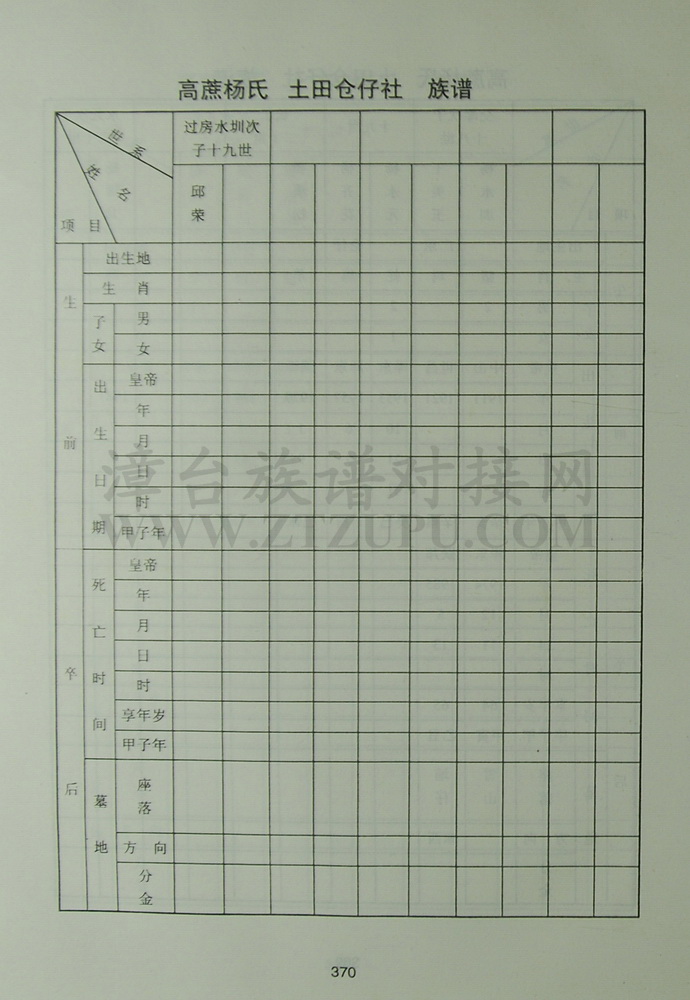 高蔗杨氏 土田仓仔社 族谱
世系
姓名
项目
过房水圳次
子十九世
邱荣
生前
出生地
生肖
子女
男
女
出生日期
皇帝
年
月
日
时
甲子年
卒后
死亡时间
皇帝
年
月
日
时
享年岁
甲子年
墓地
座落
方向
分金
漳台族谱对接网
WWW.ZTZUPU.COM
370